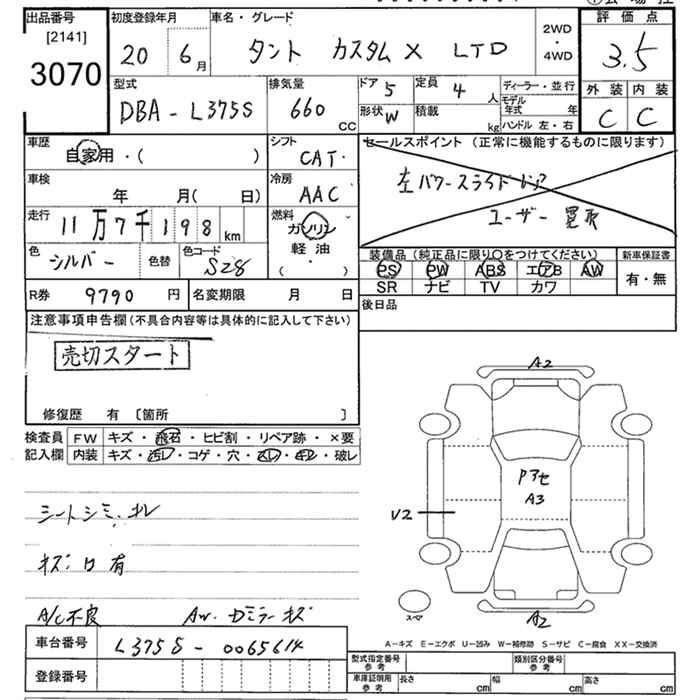 出品番号 初度登録年月 車名・グレード 2WD・4WD 評価点
[2141]
3070 20 6月 タント カスタム X LTD 3.5
型式 排気量 ドア 5 定員 4人 ディーラー・並行 外装 内装
DBA-L375S 660cc 形状 W 積載 kg モデル年式 年 C C
ハンドル 左・右
車歴 シフト セールスポイント (正常に機能するものに限ります)
自家用・( ) CAT・
車検 冷房 左パワースライドドア
年 月( 日) AAC ユーザー買取
走行 燃料
11万7千198km ガソリン
軽・油
( )
色 シルバー 色替 色コード S28
装備品 (純正品に限り○をつけてください) 新車保証書
PS PW ABS エアB AW 有・無
SR ナビ TV カワ
R券 9790円 名変期限 月 日 後日品
注意事項申告欄(不具合内容等は具体的に記入して下さい)
売切スタート
修復歴 有 [箇所 ]
検査員 FW キズ・飛石・ヒビ割・リペア跡・×要
記入欄 内装 キズ・汚レ・コゲ・穴・スレ・キレ・破レ
A2
Pアセ
A3
V2
シートシミ・オレ
ネジ口有
A/C不良 AW・Dミラーキズ
スペア
A2
A-キズ E-エクボ U-凹み W-補修跡 S-サビ C-腐食 XX-交換済
車台番号 L375S-0065614
登録番号
型式指定番号 参考 類別区分番号 参考
車庫証明用 参考 長さ cm 幅 cm 高さ cm